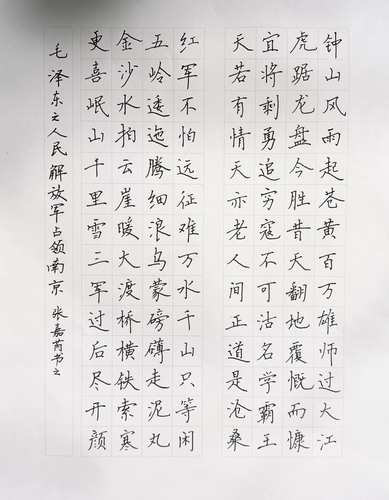 钟山风雨起苍黄百万雄师过大江
虎踞龙盘今胜昔天翻地覆慨而慷
宜将剩勇追穷寇不可沽名学霸王
天若有情天亦老人间正道是沧桑
红军不怕远征难万水千山只等闲
五岭逶迤腾细浪乌蒙磅礴走泥丸
金沙水拍云崖暖大渡桥横铁索寒
更喜岷山千里雪三军过后尽开颜
毛泽东之人民解放军占领南京 张嘉芮书之